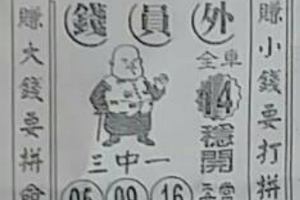 錢員外
賺大錢要拼命
賺小錢要打拼
全車
14
穩開
三中一
05 09 16